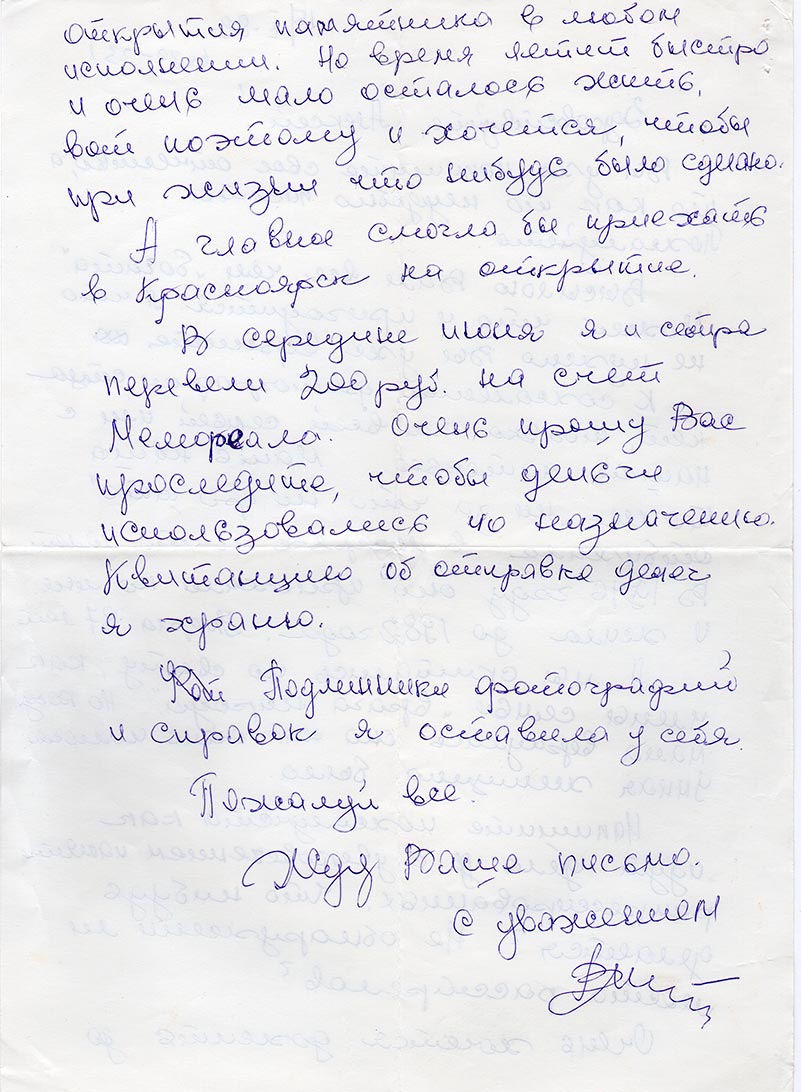 открытия памятника в любом
исполнении. Но время летит быстро
и очень мало осталось жить,
вот поэтому и хочется, чтобы
при жизни что нибудь было сделано.
А главное смогла бы приехать
в Красноярск на открытие.
В середине июня я и сестра
перевели 200 руб. на счет
Мемориала. Очень прошу Вас
проследите, чтобы деньги
использовались по назначению.
Квитанцию об отправке денег
я храню.
Подлинники фотографий
и справок я оставила у себя.
Пожалуй все.
Жду Ваше письмо.
С уважением